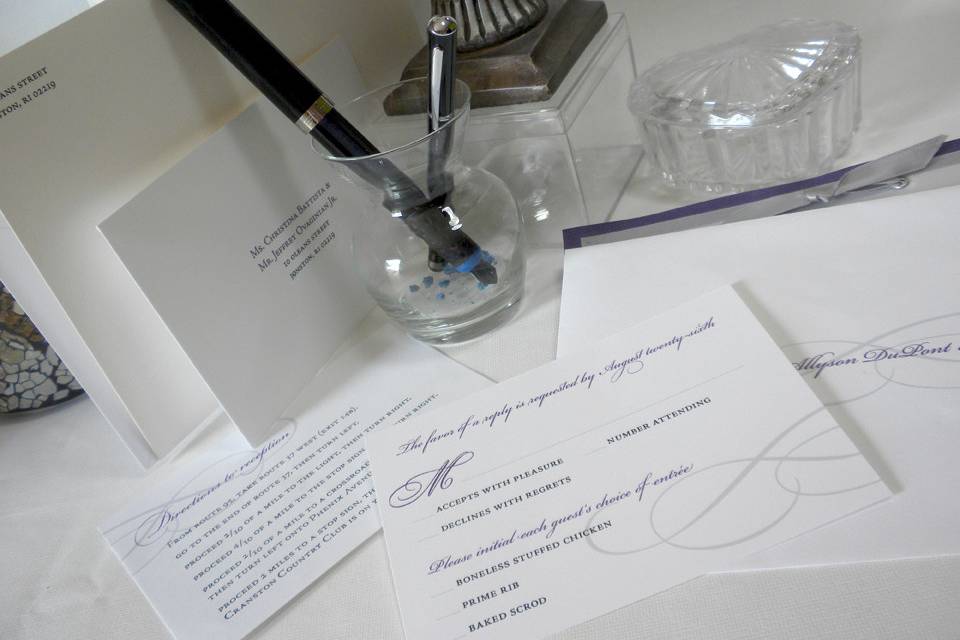 ANS STREET
STON, RI 02219
Ms. Christina Battista &
Mr. Jeffrey Ovaginian Jr.
10 Oleans Street
Jonston, RI 02219
Directions to reception
From route 95, take route 17 west (exit 148).
go to the end of route 17, then turn left.
proceed 2/10 of a mile to the light, then turn right.
proceed 4/10 of a mile to the stop sign
proceed 2/10 of a mile to a crossroad
then turn left onto Phenix Aven
proceed 2 miles to a stop sign, th
Cranston Country Club is on t
rn right.
The favor of a reply is requested by August twenty-sixth
M
number attending
accepts with pleasure
declines with regrets
Please initial each guest's choice of entrée
boneless stuffed chicken
prime rib
baked scrod
Allyson DuPont